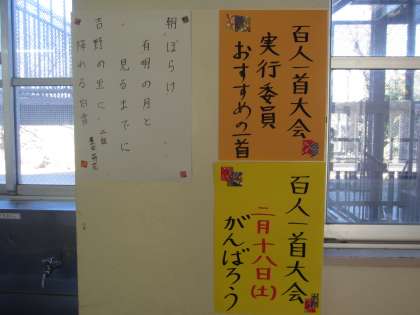 百人一首大会
実行委員
おすすめの一首
百人一首大会
二月十八日(土)
がんばろう
朝ぼらけ
有明の月と
見るまでに
吉野の里に
降れる白雪